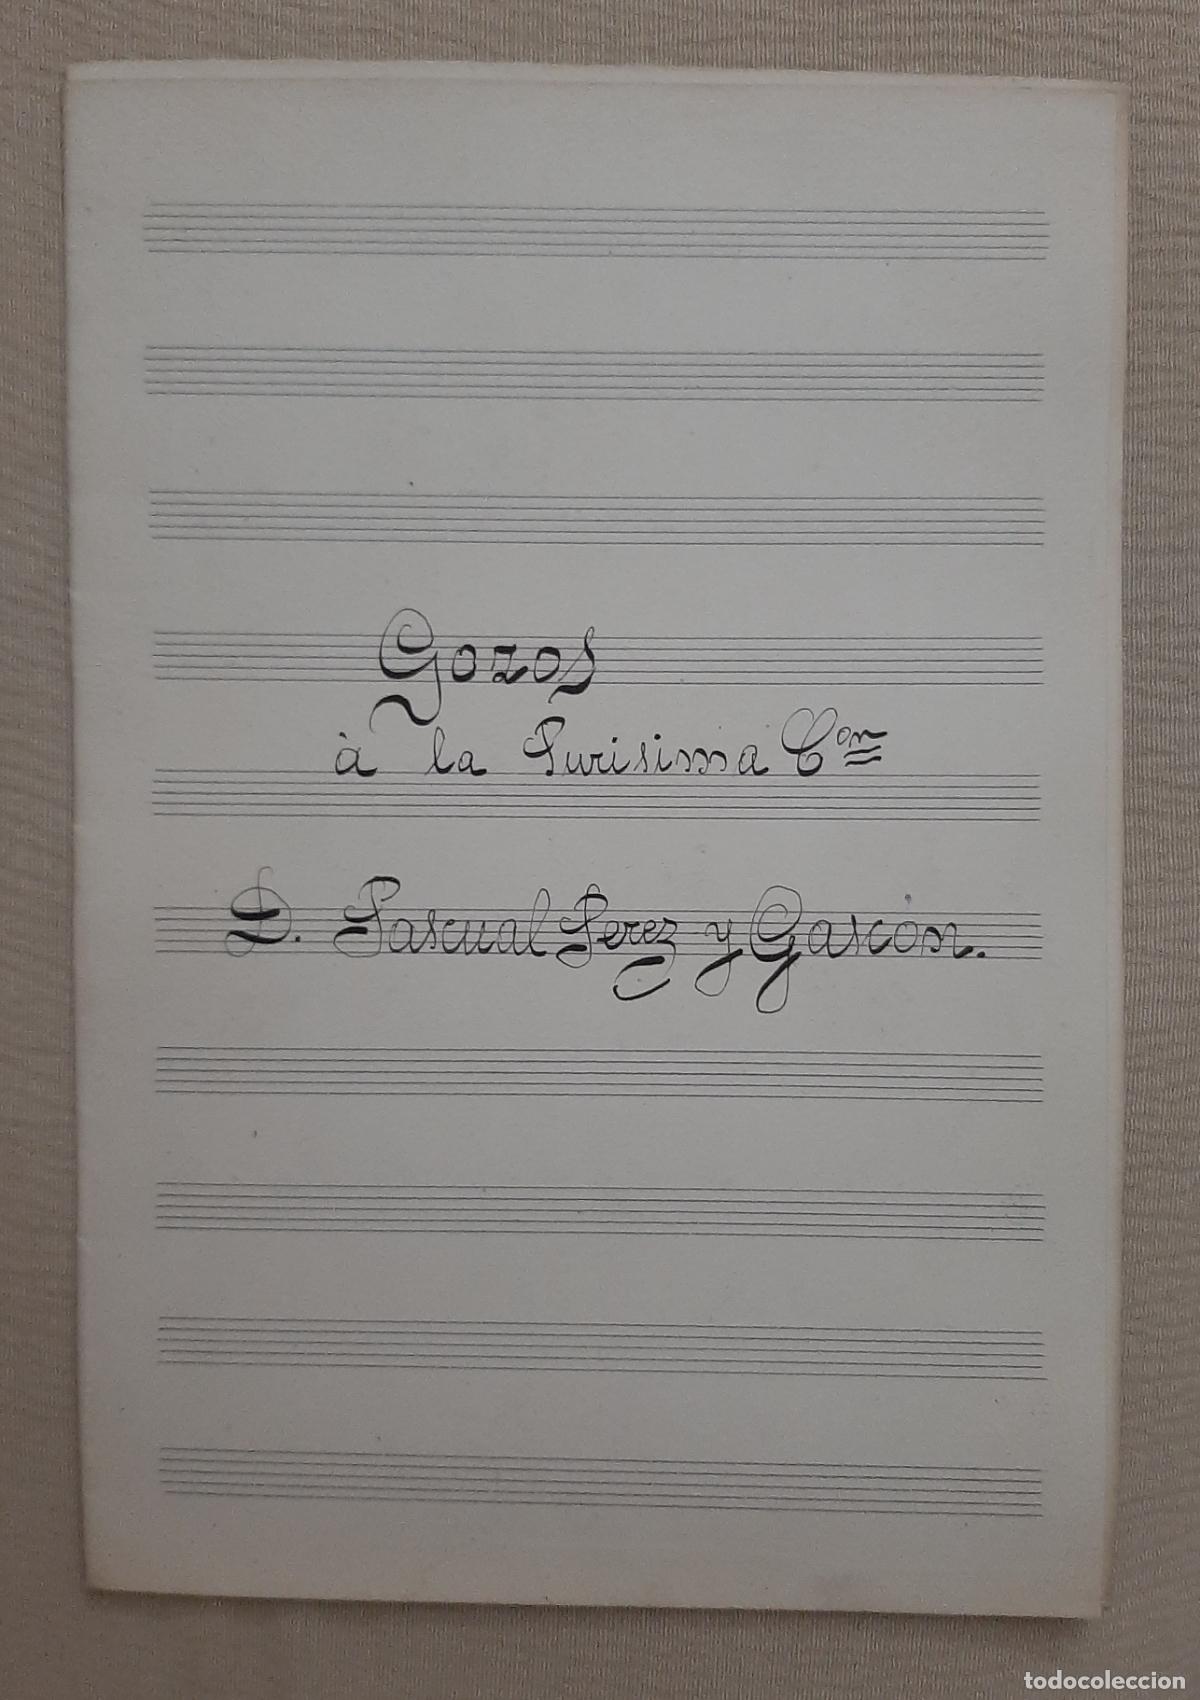 Gozos
à la Purisima Con
D. Pascual Perez y Gascón.
todocoleccion